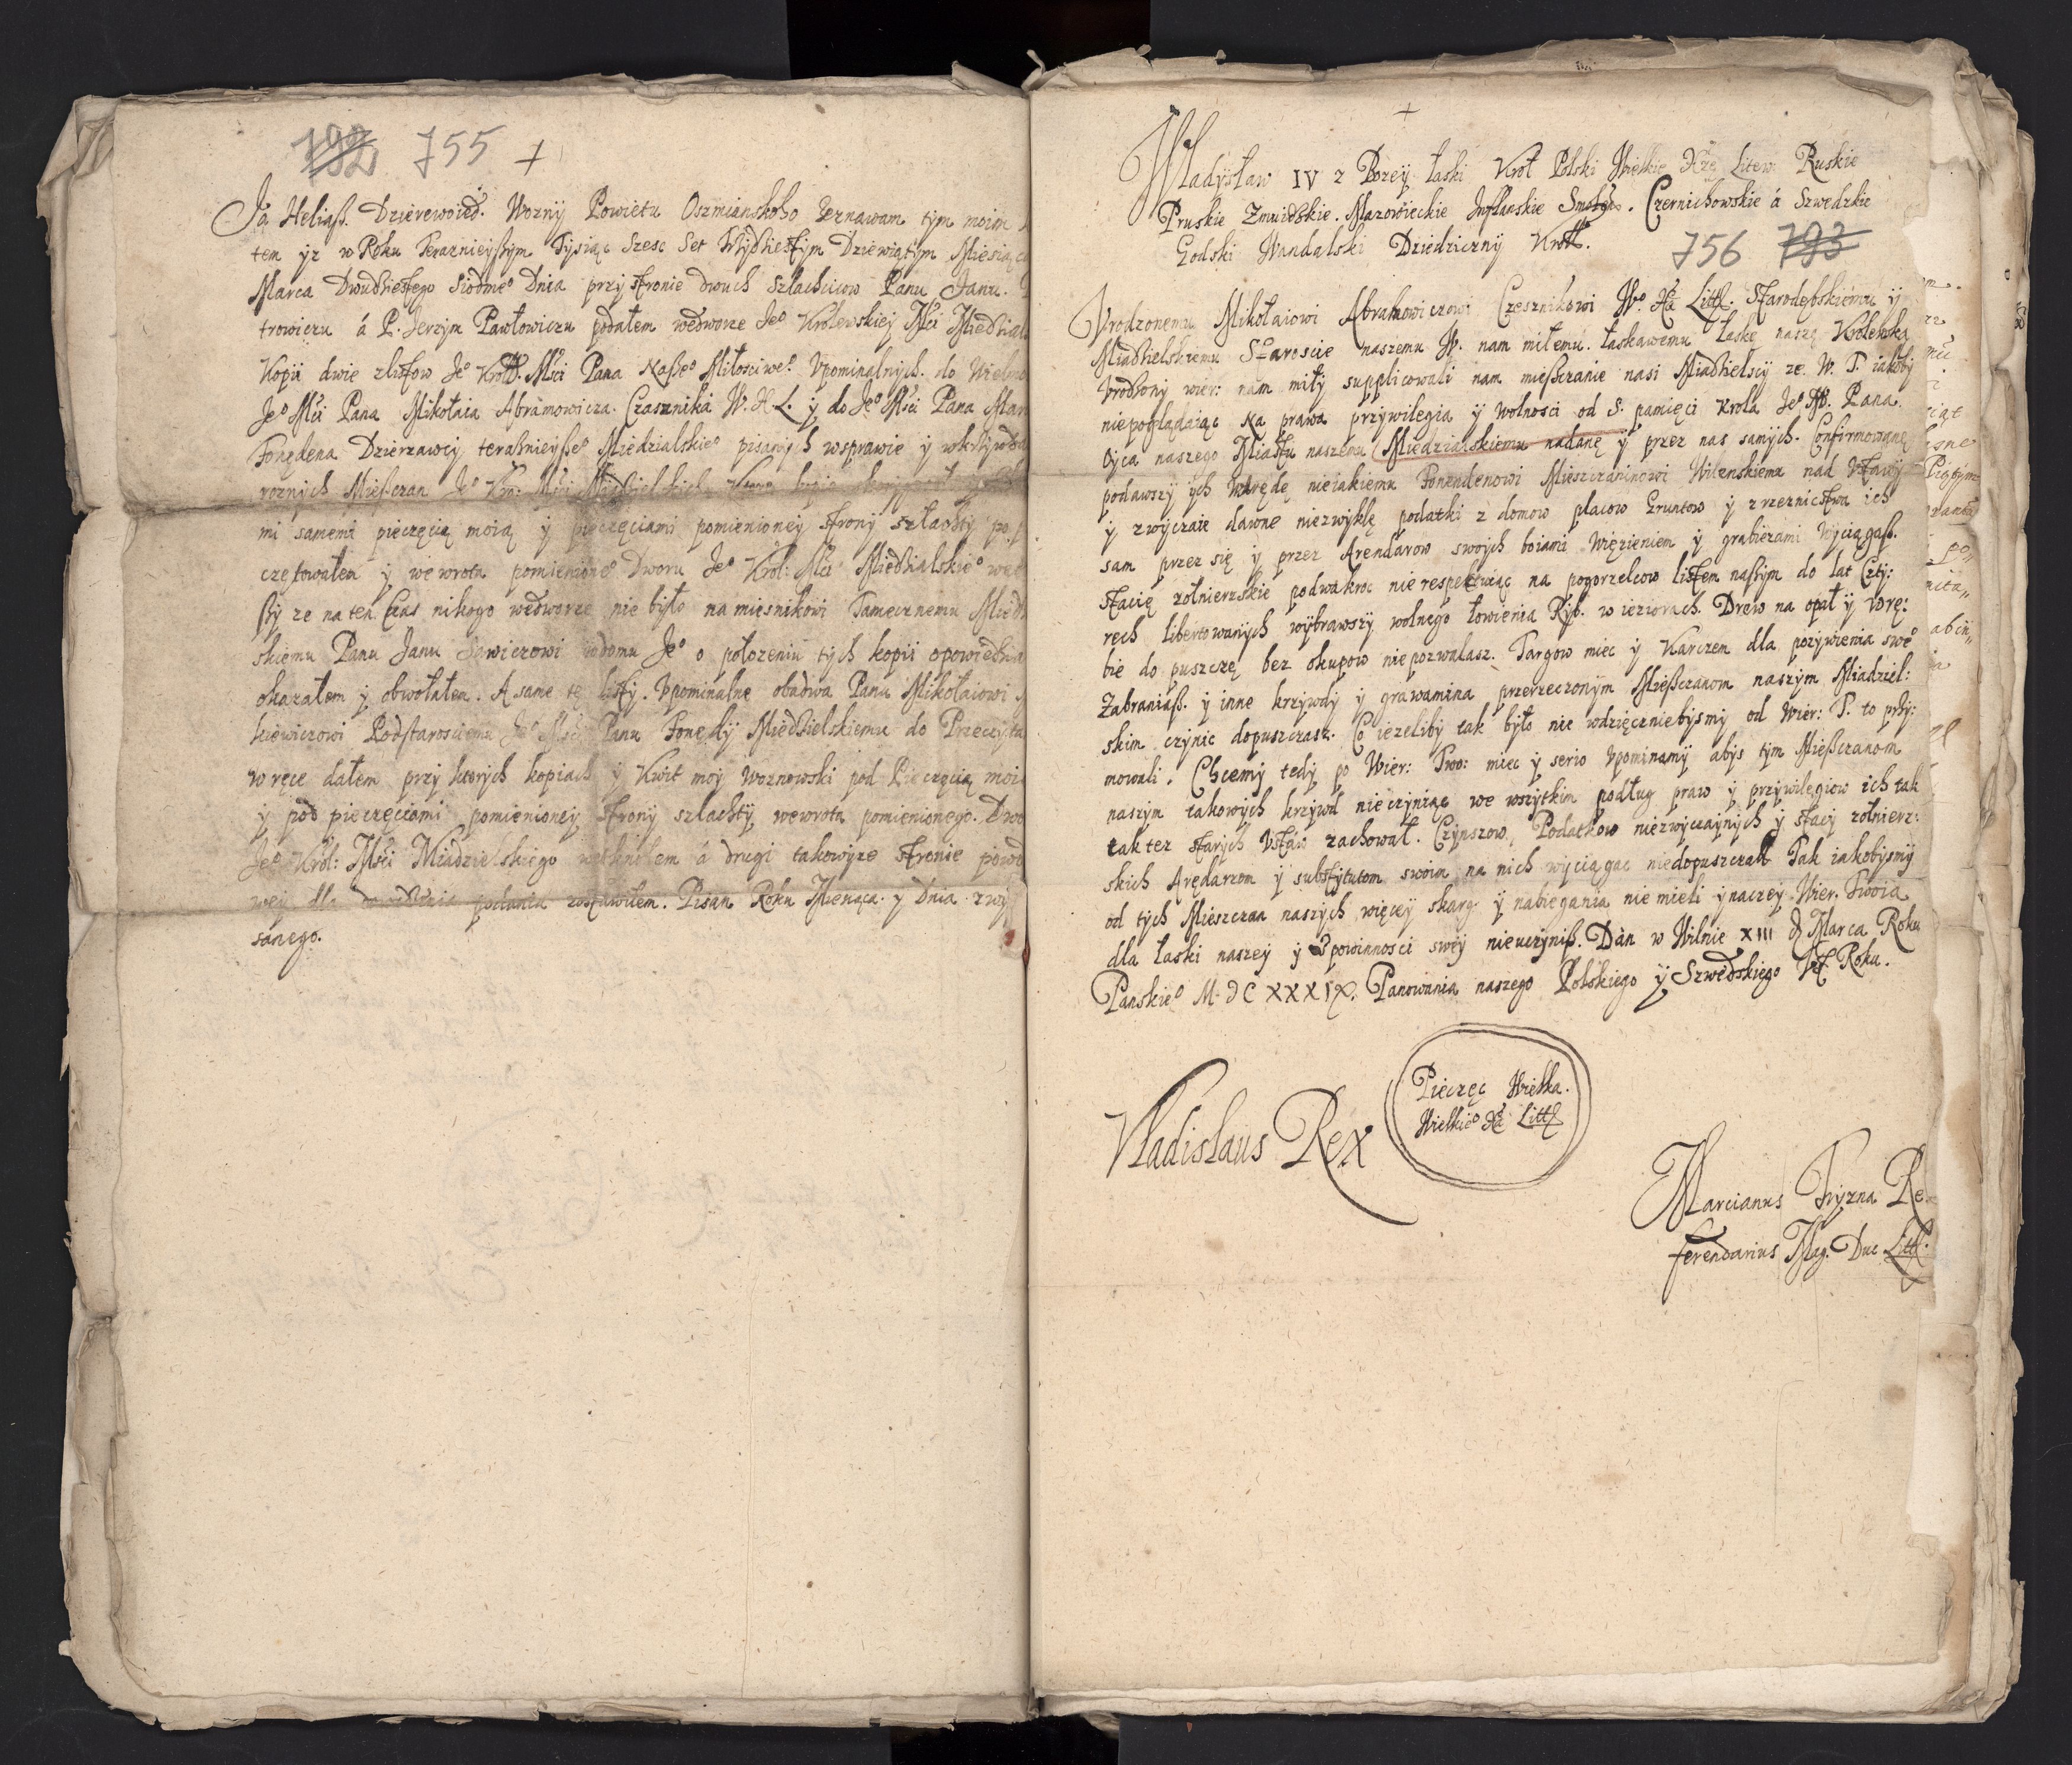 792 755 +
Ja Heliaß. Dzierewoied. Woznÿ Powietu Oszmianskoho zeznawam tÿm moim
tem ÿz w Roku Teraznieÿßÿm Tÿsiąc Szesc Set Trÿdziestÿm Dziewiątÿm Miesiąca
Marca Dwudziestego Siodme° Dnia przÿ stronie dwuch Szlachcicow Panu Janu.
trowiczu á P. Jerzÿm Pawłowiczu podałem wedworze Je° Krolewskieÿ Mści Miedzial
Kopii dwie zlistow Je° Kroll. Mści Pana Naße° Miłosciwe°. Vpominalnÿch. do Wielmo
Je° Mści Pana Mikołaia Abramowicza. Czasznika W. X L. ÿ do Je° Mści Pana Mar
Fonędena Dzierzawcÿ teraznieÿße° Miedzialskie° pisanÿch wsprawie ÿ wkrzÿwda
roznÿch Mießczan Je° Kro: Mści
mi samemi pieczęcią moią ÿ pieczęciami pomienioneÿ stronÿ szlachtÿ po
czętowałem ÿ wewrota pomienione° Dworu Je° Krol: Mści Miedzialskie° we
ßÿ ze na ten Czas nikogo wedworze nie bÿło namiesnikowi Tamecznemu Miedz
skiemu Panu Janu Sawiczowi wdomu Je° o położeniu tÿch kopii opowiedzia
okazałem ÿ obwołałem. A same te listÿ. Vpominalne obadwa Panu Mikołaiowi
kiewiczowi Podstaroscienu Je° Mści Panu Fonedÿ Miedzielskiemu do Przeczÿta
wręce dałem przÿ ktorÿch kopiach ÿ Kwit moÿ woznowski pod Pieczęcią moi
ÿ pod pieczęciami pomienioneÿ stronÿ szlachtÿ wewrota pomienionego. Dwo
Je° Krol: Mści Miadzielskiego wetknełem á drugi takowÿze stronie powo
weÿ dla podania zostawiłem. Pisan Roku Miesiąca. ÿ Dnia. zwÿ
sanego.
+
Władysław IV z Bozeÿ łaski Krol Polski Wielkie Xzę Litew Ruskie
Pruskie Zmuidskie. Mazowieckie Inflanskie Smolęn. Czernichowskie á Szwedzkie
Godski Wandalski Dziedzicznÿ Kroll.
756 793
Vrodzonemu Mikołaiowi Abrahowiczowi Czesznikowi W° Xa Littl. Starodębskiemu ÿ
Miadzielskiemu Staroscie naszemu W. nam miłemu. łaskawemu łaskę naszą Krolewską
Vrodzonÿ wier: nam miłÿ supplicowali nam mießczanie nasi Miadzielscÿ ze. W. T. iakobÿ
niepoglądaiąc na prawa przÿwilegia ÿ wolnosci od S. pamięci Krola Je° M. Pana.
Oÿca naszego Miastu naszemu Miedzialskiemu nadanę ÿ przez nas samÿch. Confirmowanę
podawszÿ ÿch Warędę nieiakiemu Fonendenowi Mieszczaninowi Wilenskiemu nad Vstawÿ
ÿ zwÿczaie dawne niezwÿklę podatki z domow placow Gruntow ÿ zrzeznictwa ich
sam przez się ÿ przez Arendarow swoÿch boiami Więzieniem ÿ grabiezami Wÿciągaß.
Stacię zolnierzskie podwakroc nie respektuiąc na pogorzelcow listem naßÿm do lat Cztÿ:
rech libertowanÿch wÿbrawszÿ wolnego łowienia Rÿb. w ieziorach. Drew na opał ÿ wrę:
bie do puszczę bez okupow niepozwalasz. Targow miec ÿ Karczem dla pozÿwienia swe°
Zabraniaß. ÿ inne krzÿwdÿ ÿ grawamina przerzeczonÿm Mießczanom naszÿm Miadziel:
skim czÿnic dopuszczasz. Co iezelibÿ tak bÿło nie wdzięczniebÿsmÿ od Wier: T. to przÿ:
mowali. Chcemÿ tedÿ po Wier: Two: miec ÿ serio Vpominamÿ abÿs tÿm Mießczanom
naszÿm takowÿch krzÿwd nieczÿniąc we wszÿtkim podług praw ÿ przÿwilegiow ich tak
tak tez starÿch Vstaw zachował. Czÿnszow, Podatkow niezwÿczaÿnÿch ÿ stacÿ zołnierz:
skich Arędarzom ÿ substÿtutom swoim na nich wÿciągac niedopuszczał Tak iakobÿsmÿ
od tÿch Mieszczan naszÿch więceÿ skarg ÿ nabiegania nie mieli ÿnaczeÿ Wier. Twoia
dla łaski naszeÿ ÿ Zpowinnosci sweÿ nieuczÿniß. Dan w Wilnie XIII d Marca Roku
Panskie° M. DC XXXIX. Panowania naszego Polskiego ÿ Szwedskiego Roku.
Pieczęc Wielka.
Wielkie° Xa Littl
Vladislaus Rex
Marcianus Trÿzna Re
ferendarius Mag. Duc Littl.